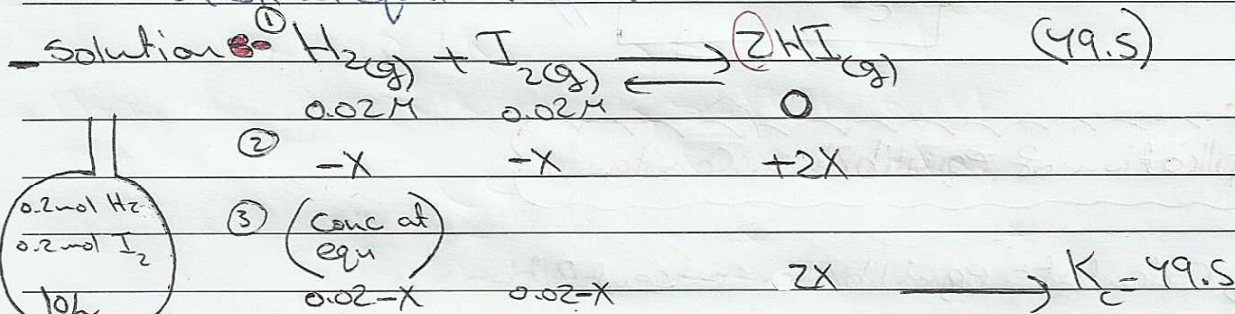 Solution :- ① H2(g) + I2(g) ⇌ 2HI(g) (49.5)
0.02M 0.02M 0
② -X -X +2X
0.2mol H2
0.2mol I2
10L
③ (Conc at equ)
0.02-X 0.02-X 2X → Kc=49.5